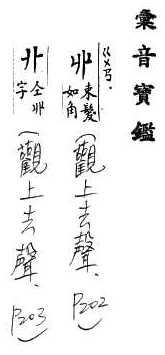 彙音寶鑑
ㄍㄨㄢˋ
丱 束髮如角 (觀上去聲. P202)
卝 仝丱字 (觀上去聲. P203)